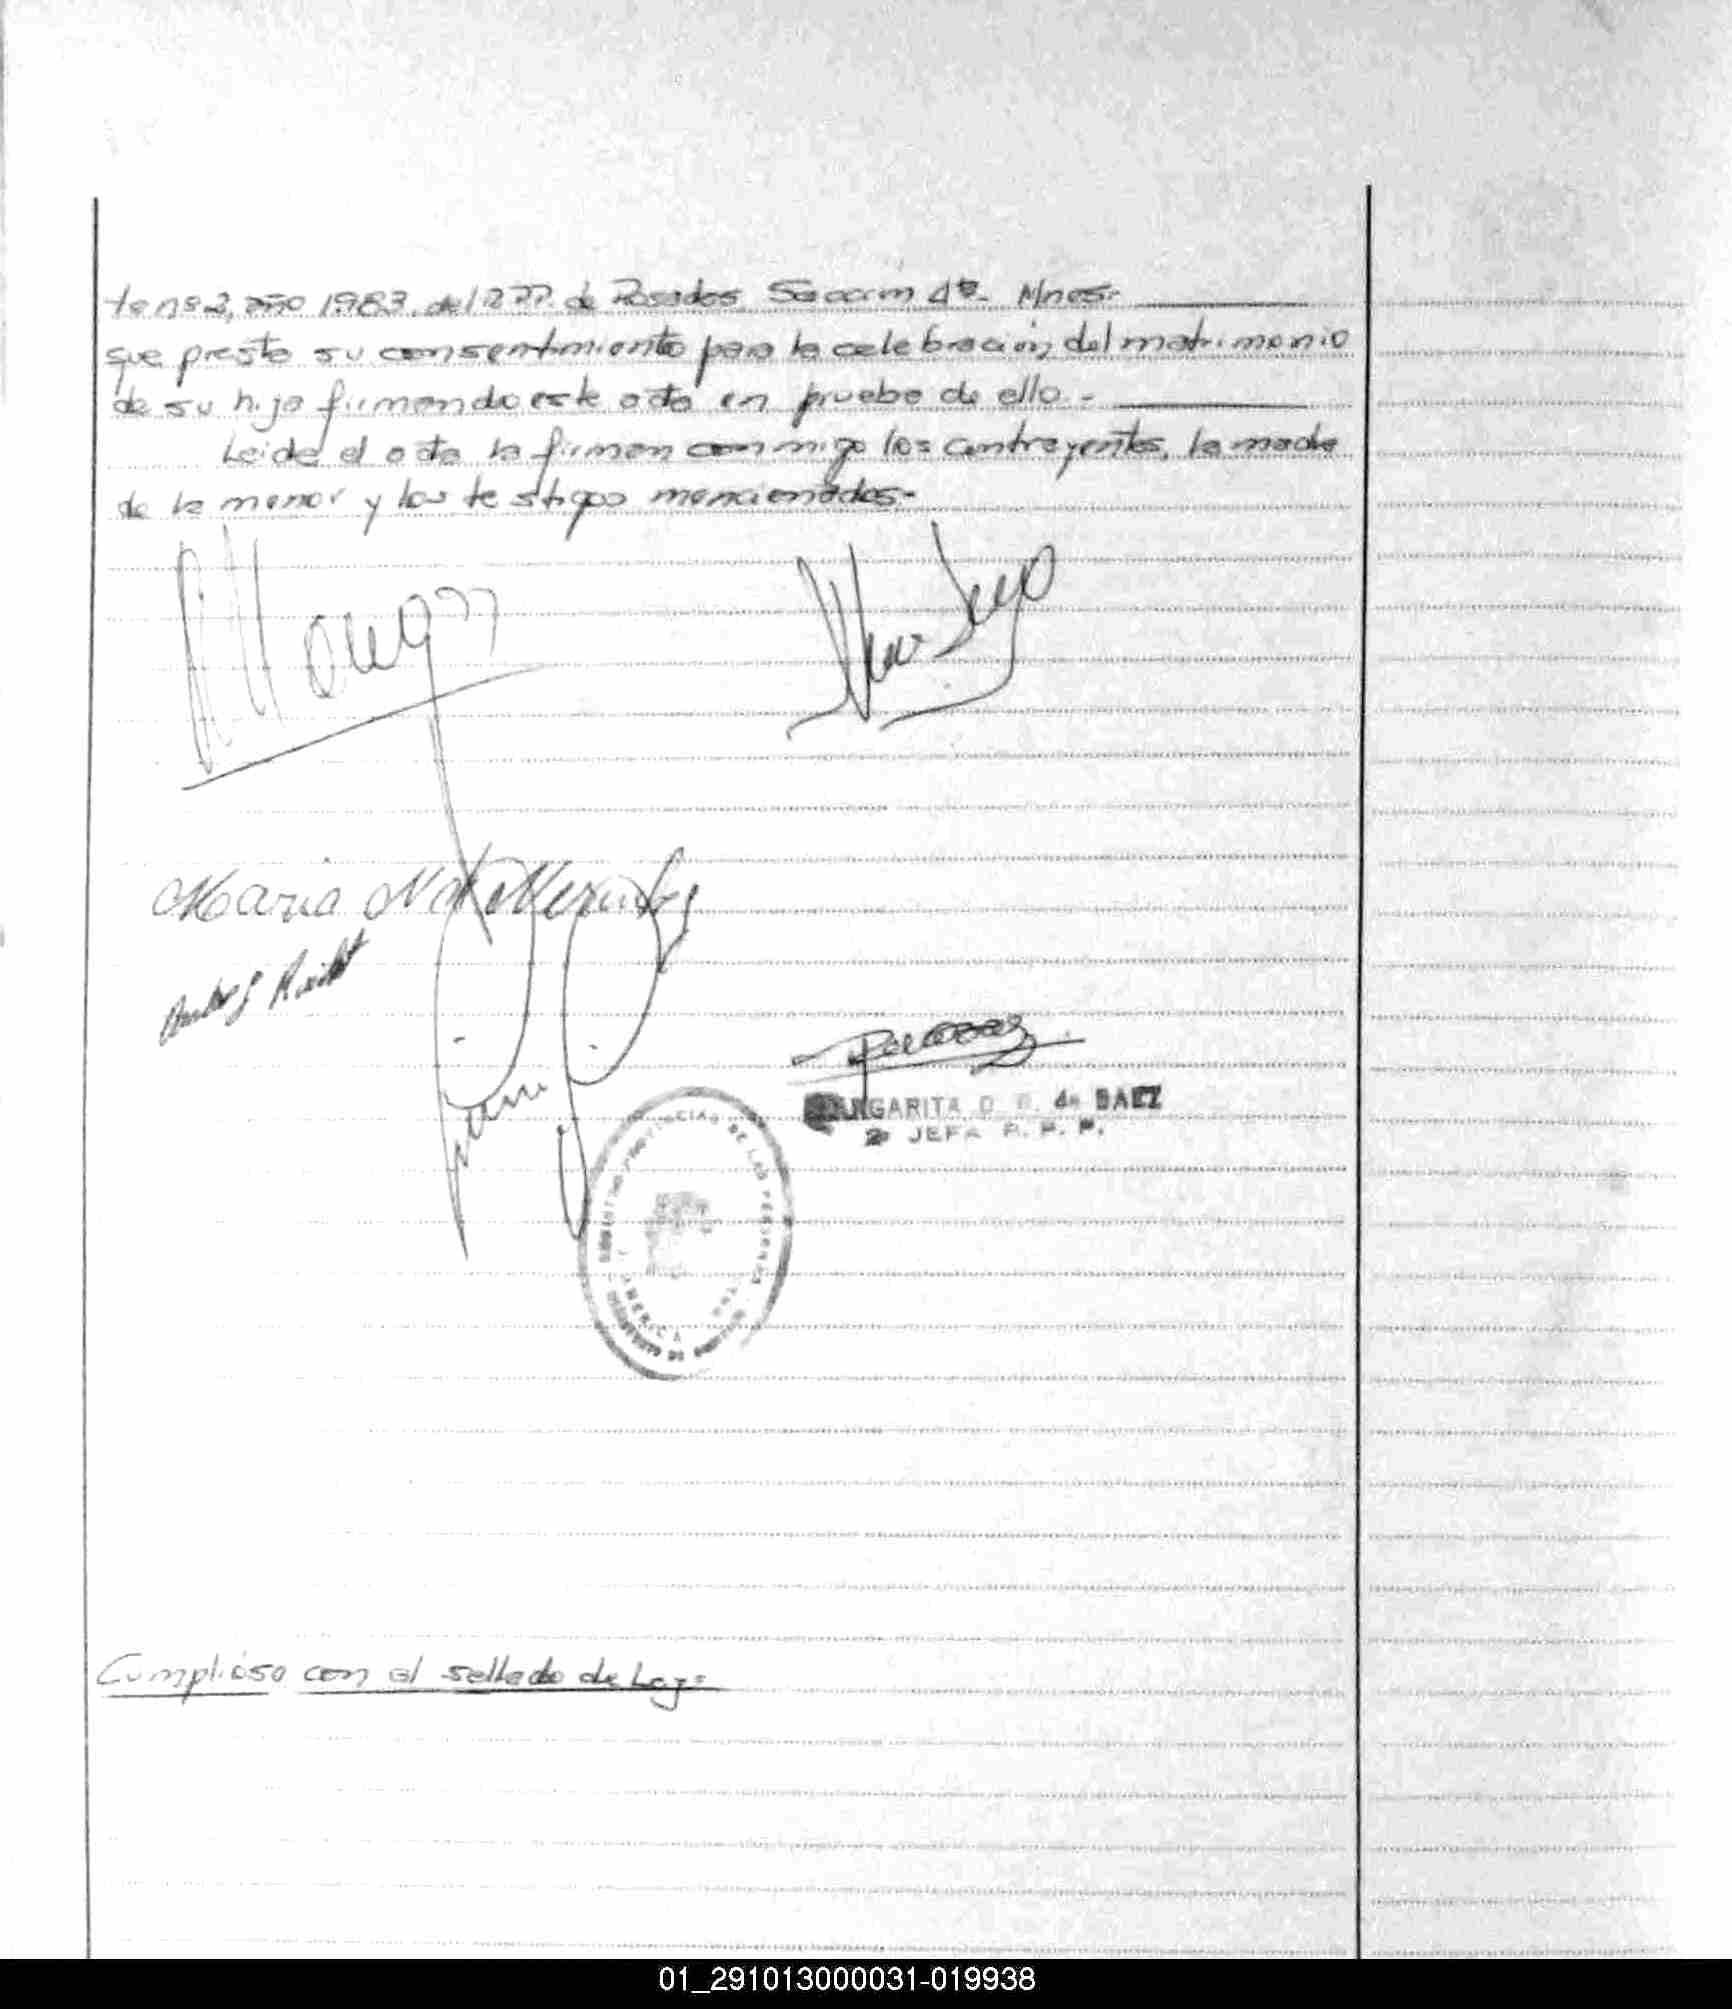 te nº 2, año 1983, del R.PP. de Posadas Seccion 4ª- Mnes.-
que presta su consentimiento para la celebración del matrimonio
de su hija firmando este acta en prueba de ello.-
Leida el acta la firman conmigo los contrayentes, la madre
de la menor y los testigos mencionados.-
Maria
MARGARITA D de BAEZ
2ª JEFA R. P. P.
PROVINCIAL DE LAS PERSONAS
AMERICA
Cumplióse con el sellado de Ley.-
01_291013000031-019938